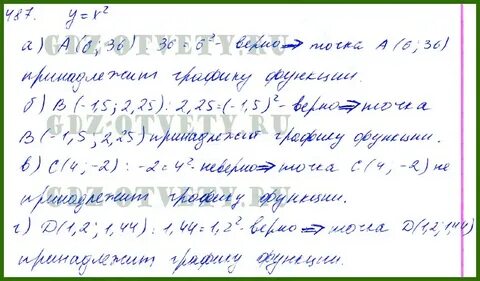 487. y = x²
а) А (6; 36) 36 = 6² - верно ⇒ точка А (6; 36)
принадлежит графику функции.
б) В (-1,5; 2,25): 2,25 = (-1,5)² - верно ⇒ точка
В (-1,5; 2,25) принадлежит графику функции.
в) С (4; -2): -2 = 4² - неверно ⇒ точка С (4, -2) не
принадлежит графику функции.
г) D (1,2; 1,44): 1,44 = 1,2² - верно ⇒ точка D (1,2; 1,44)
принадлежит графику функции.
GDZ-OTVETY.RU
GDZ-OTVETY.RU
GDZ-OTVETY.RU